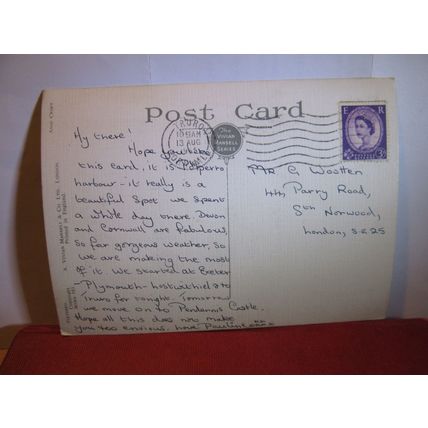 Post Card
The
VIVIAN
MANSELL
SERIES
TRURO
10 15 AM
13 AUG
CORNWALL
E R
3D
Hy there!
Hope you like
this card, it is Polperro
harbour - it really is a
beautiful spot we spent
a whole day there. Devon
and Cornwall are fabulous,
so far gorgeous weather, so
we are making the most
of it. We started at Exeter
- Plymouth - Lostwithiel & to
Truro for tonight. Tomorrow
we move on to Pendennis Castle.
Hope all this does not make
you too envious. love Pauline
Mr G Wootten
44, Parry Road,
Sth Norwood,
London, S.E 25
A. VIVIAN MANSELL & CO. LTD., LONDON
Printed in England